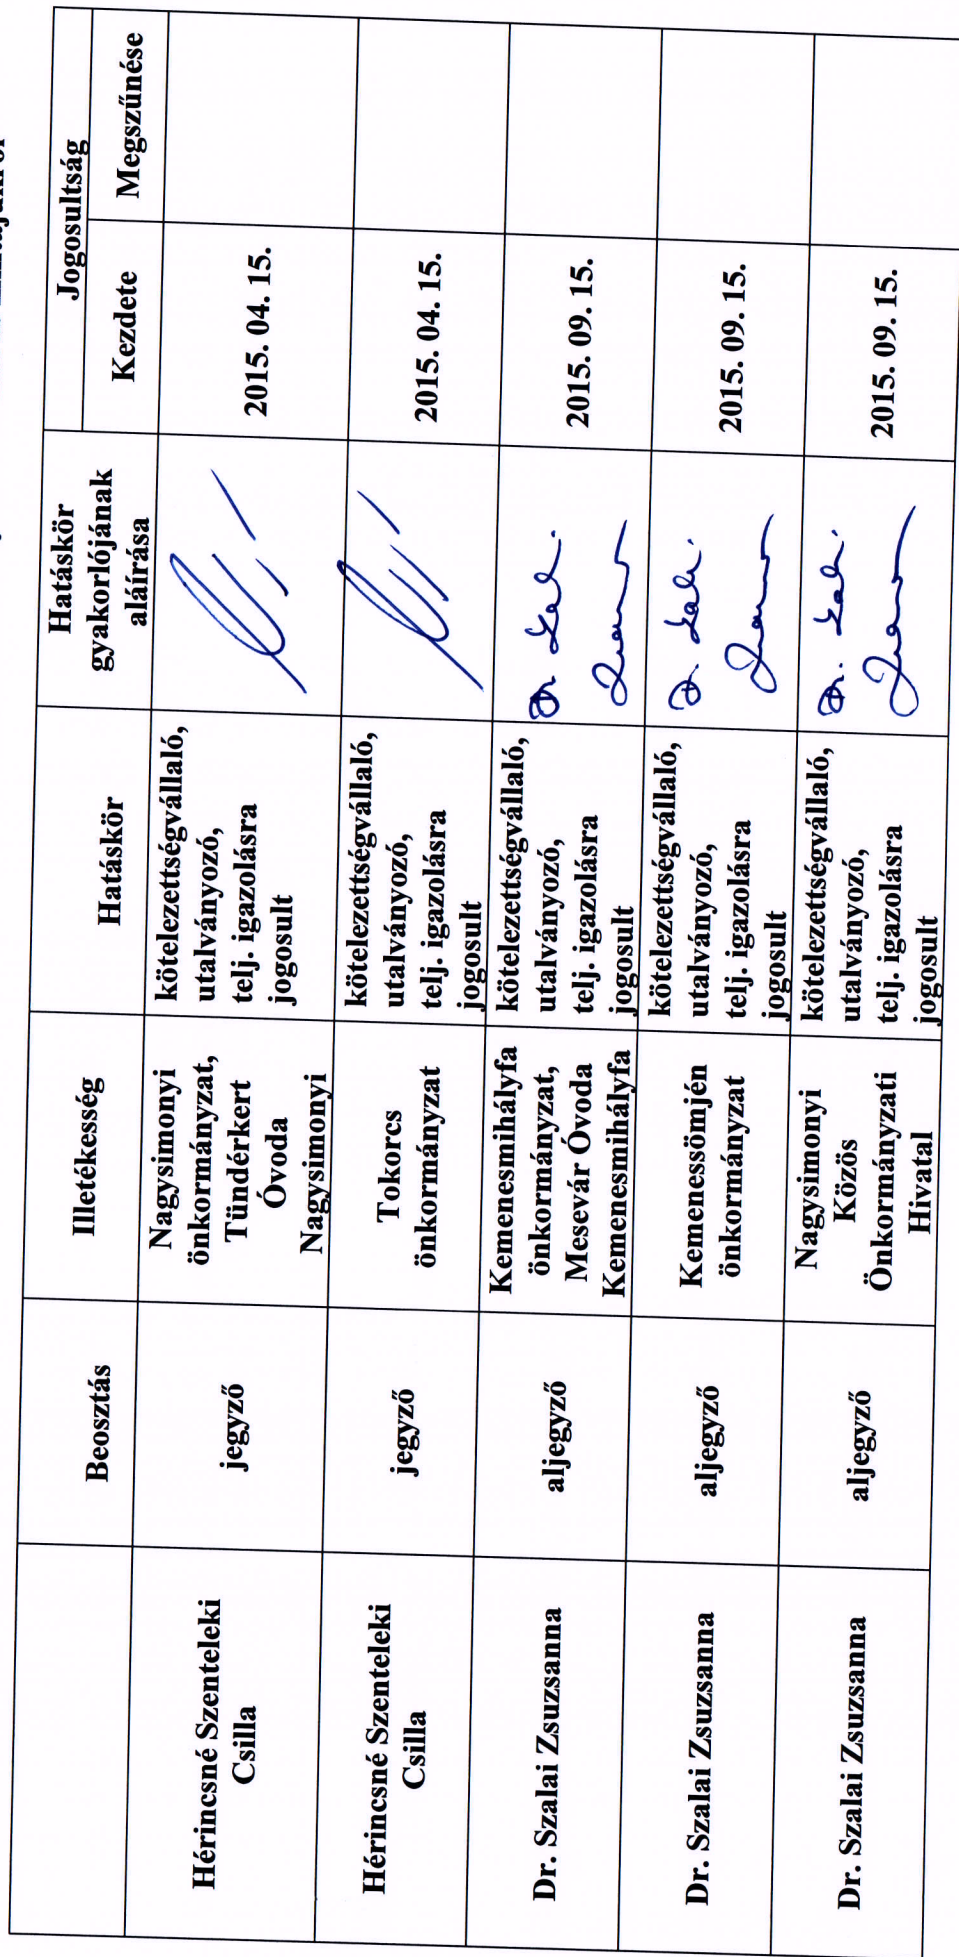 Jogosultság
Beosztás Illetékesség Hatáskör Hatáskör
gyakorlójának
aláírása Kezdete Megszűnése
Hérincsné Szenteleki
Csilla
jegyző
Nagysimonyi
önkormányzat,
Tündérkert
Óvoda
Nagysimonyi
kötelezettségvállaló,
utalványozó,
telj. igazolásra
jogosult
2015. 04. 15.
Hérincsné Szenteleki
Csilla
jegyző
Tokorcs
önkormányzat
kötelezettségvállaló,
utalványozó,
telj. igazolásra
jogosult
2015. 04. 15.
Dr. Szalai Zsuzsanna
aljegyző
Kemenesmihályfa
önkormányzat,
Mesevár Óvoda
Kemenesmihályfa
kötelezettségvállaló,
utalványozó,
telj. igazolásra
jogosult
2015. 09. 15.
Dr. Szalai Zsuzsanna
aljegyző
Kemenessömjén
önkormányzat
kötelezettségvállaló,
utalványozó,
telj. igazolásra
jogosult
2015. 09. 15.
Dr. Szalai Zsuzsanna
aljegyző
Nagysimonyi
Közös
Önkormányzati
Hivatal
kötelezettségvállaló,
utalványozó,
telj. igazolásra
jogosult
2015. 09. 15.